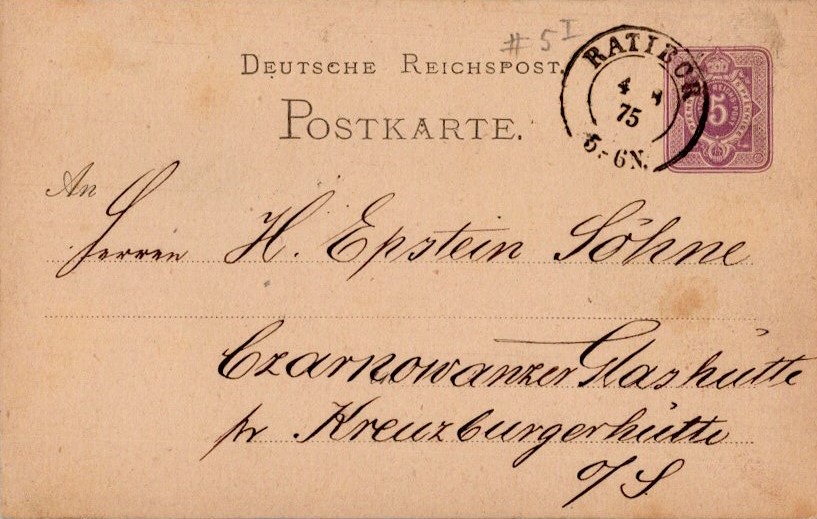 # 5 I
DEUTSCHE REICHSPOST.
POSTKARTE.
RATIBOR
4
75
5-6N.
5
An
Herren H. Epstein Söhne
Czarnowanzer Glashütte
pr Kreuzburgerhütte
O/S.